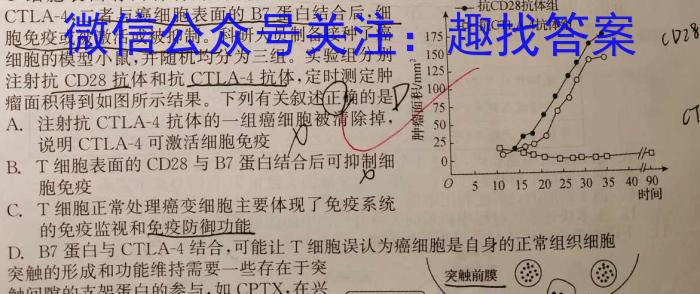 CTLA-4,二者与癌细胞表面的 B7 蛋白结合后,细
胞免疫
微信公众号关注：趣找答案
细胞的模型小鼠,并随机均分为三组。实验组分别
注射抗 CD28 抗体和抗 CTLA-4 抗体,定时测定肿
瘤面积得到如图所示结果。下列有关叙述正确的是
D
A. 注射抗 CTLA-4 抗体的一组癌细胞被清除掉,
说明 CTLA-4 可激活细胞免疫
B. T 细胞表面的 CD28 与 B7 蛋白结合后可抑制细
胞免疫
C. T 细胞正常处理癌变细胞主要体现了免疫系统
的免疫监视和免疫防御功能
D. B7 蛋白与 CTLA-4 结合,可能让 T 细胞误认为癌细胞是自身的正常组织细胞
突触的形成和功能维持需要一些存在于突
触间隙的支架蛋白的参与,如 CPTX,在兴
抗CD28抗体组
肿瘤面积/mm²
175
150
125
100
75
50
25
0
0 5 10 15 20 25 30 35 40 90
时间
CD28
CT
突触前膜